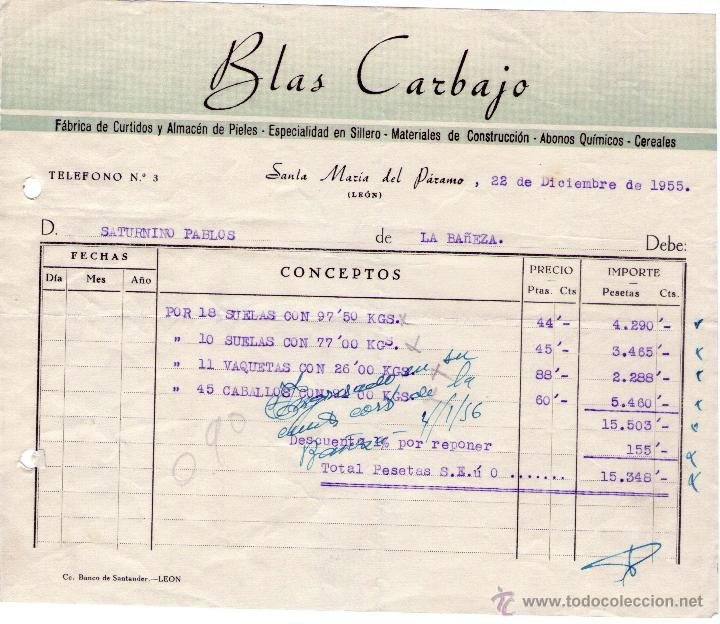 Blas Carbajo
Fábrica de Curtidos y Almacén de Pieles - Especialidad en Sillero - Materiales de Construcción - Abonos Químicos - Cereales
TELEFONO N.º 3
Santa María del Páramo , 22 de Diciembre de 1955.
(LEÓN)
D. SATURNINO PABLOS de LA BAÑEZA. Debe:
FECHAS CONCEPTOS PRECIO IMPORTE
Día Mes Año Ptas. Cts Pesetas Cts.
POR 18 SUELAS CON 97'50 KGS. 44'- 4.290'-
" 10 SUELAS CON 77'00 KGS. 45'- 3.465'-
" 11 VAQUETAS CON 26'00 KGS. 88'- 2.288'-
" 45 CABALLOS CON 00 KGS. 60'- 5.460'-
15.503'-
Ingresado en su
cta de la
Bañeza 4/1/56
Descuento 1% por reponer 155'-
Total Pesetas S.E.ú O ....... 15.348'-
090
Cc. Banco de Santander.—LEON
www.todocoleccion.net